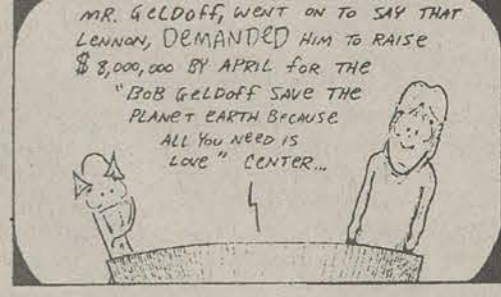 MR. GELDOFF, WENT ON TO SAY THAT
LENNON, DEMANDED HIM TO RAISE
$8,000,000 BY APRIL FOR THE
"BOB GELDOFF SAVE THE
PLANET EARTH BECAUSE
ALL YOU NEED IS
LOVE" CENTER...